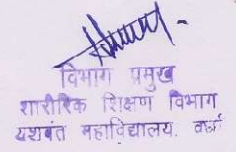 विभाग प्रमुख
शारीरिक शिक्षण विभाग
यशवंत महाविद्यालय. वर्धा